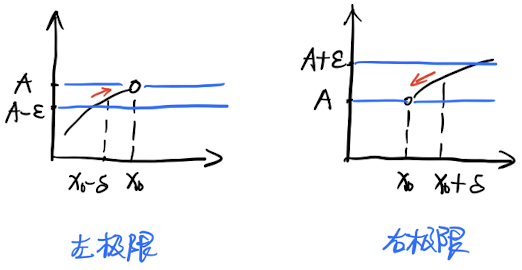 A
A-ε
x₀-δ
x₀
左极限
A+ε
A
x₀
x₀+δ
右极限